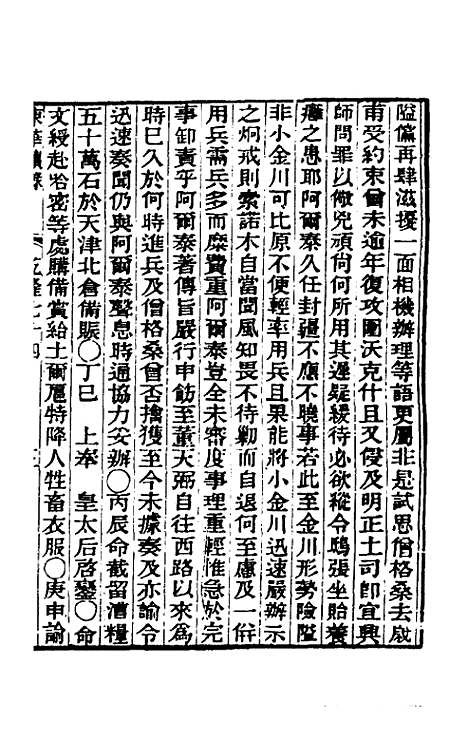 隘儻再肆滋擾一面相機辦理等語更屬非是試思僧格桑去歲
甫受約束曾未逾年復攻圍沃克什且又侵及明正土司卽宜興
師問罪以儆兇頑尙何所用其遲疑緩待必欲縱令鴟張坐貽養
癰之患耶阿爾泰久任封疆不應不曉事若此至金川形勢險隘
非小金川可比原不便輕率用兵且果能將小金川迅速嚴辦示
之炯戒則索諾木自當聞風知畏不待勦而自退何至慮及一併
用兵需兵多而糜費重阿爾泰豈全未審度事理重輕惟急於完
事卸責乎阿爾泰著傳旨嚴行申飭至董天弼自往西路以來爲
時已久於何時進兵及僧格桑曾否擒獲至今未據奏及亦諭令
迅速奏聞仍與阿爾泰聲息時通協力妥辦○丙辰命截留漕糧
五十萬石於天津北倉備賑○丁巳 上奉 皇太后啓鑾○命
文綬赴哈密等處購備賞給土爾扈特降人牲畜衣服○庚申諭
東華續錄 乾隆七十四